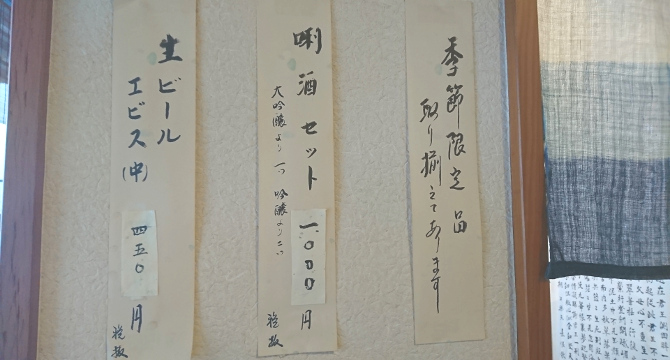 季節限定品
取り揃えてあります
唎酒セット 一、〇〇〇円
大吟醸より一つ 吟醸より二つ
税抜
生ビール
エビス(中) 四五〇円
税抜